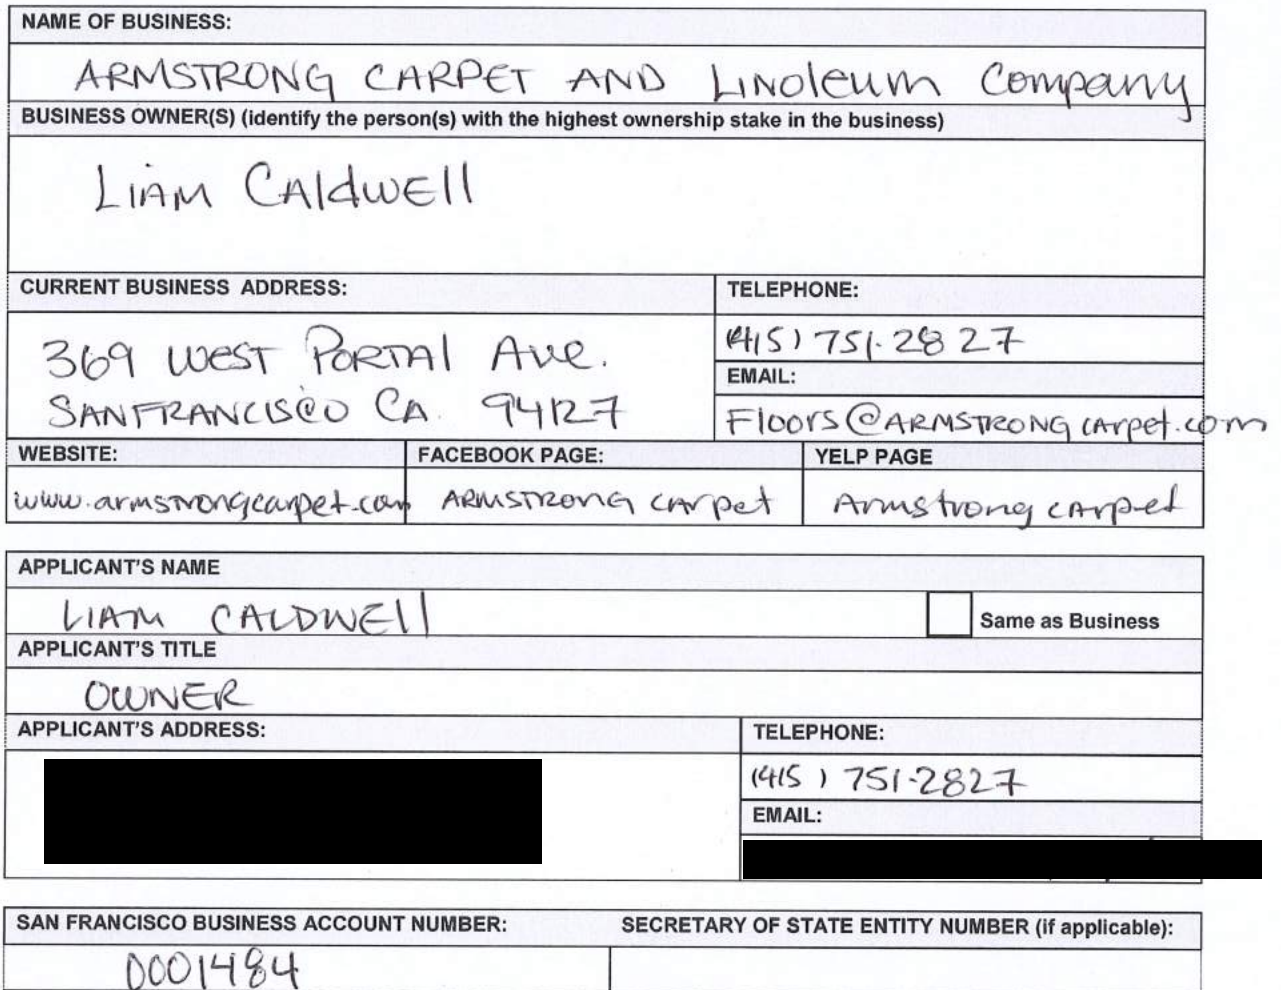 NAME OF BUSINESS:
ARMSTRONG CARPET AND Linoleum Company
BUSINESS OWNER(S) (identify the person(s) with the highest ownership stake in the business)
LIAM CAldwEll
CURRENT BUSINESS ADDRESS:
TELEPHONE:
369 WEST PORTAl Ave.
SANFRANCISCO CA. 94127
(415) 751-2827
EMAIL:
Floors@ARMSTRONGcArpet.com
WEBSITE:
FACEBOOK PAGE:
YELP PAGE
www.armstrongcarpet.com
ARMSTRONG cArpet
Armstrong cArpet
APPLICANT'S NAME
LIAM CALDWEll
Same as Business
APPLICANT'S TITLE
OWNER
APPLICANT'S ADDRESS:
TELEPHONE:
(415) 751-2827
EMAIL:
SAN FRANCISCO BUSINESS ACCOUNT NUMBER:
SECRETARY OF STATE ENTITY NUMBER (if applicable):
0001484